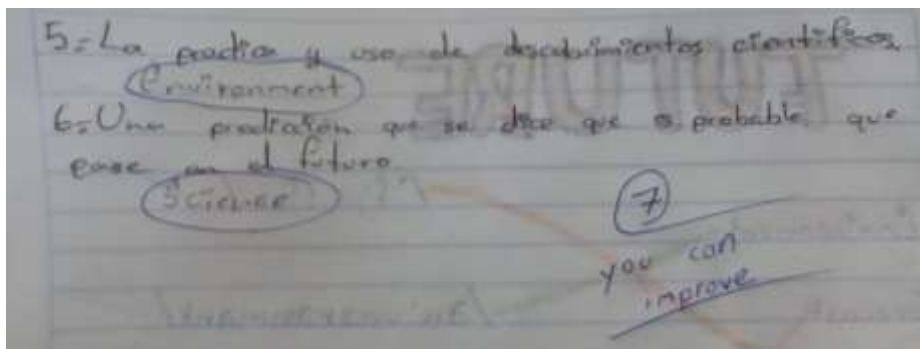 5=La practica y uso de descubrimientos cientificos
Environment
6=Una predicción que se dice que es probable que
pase en el futuro
Science
7
you can
improve